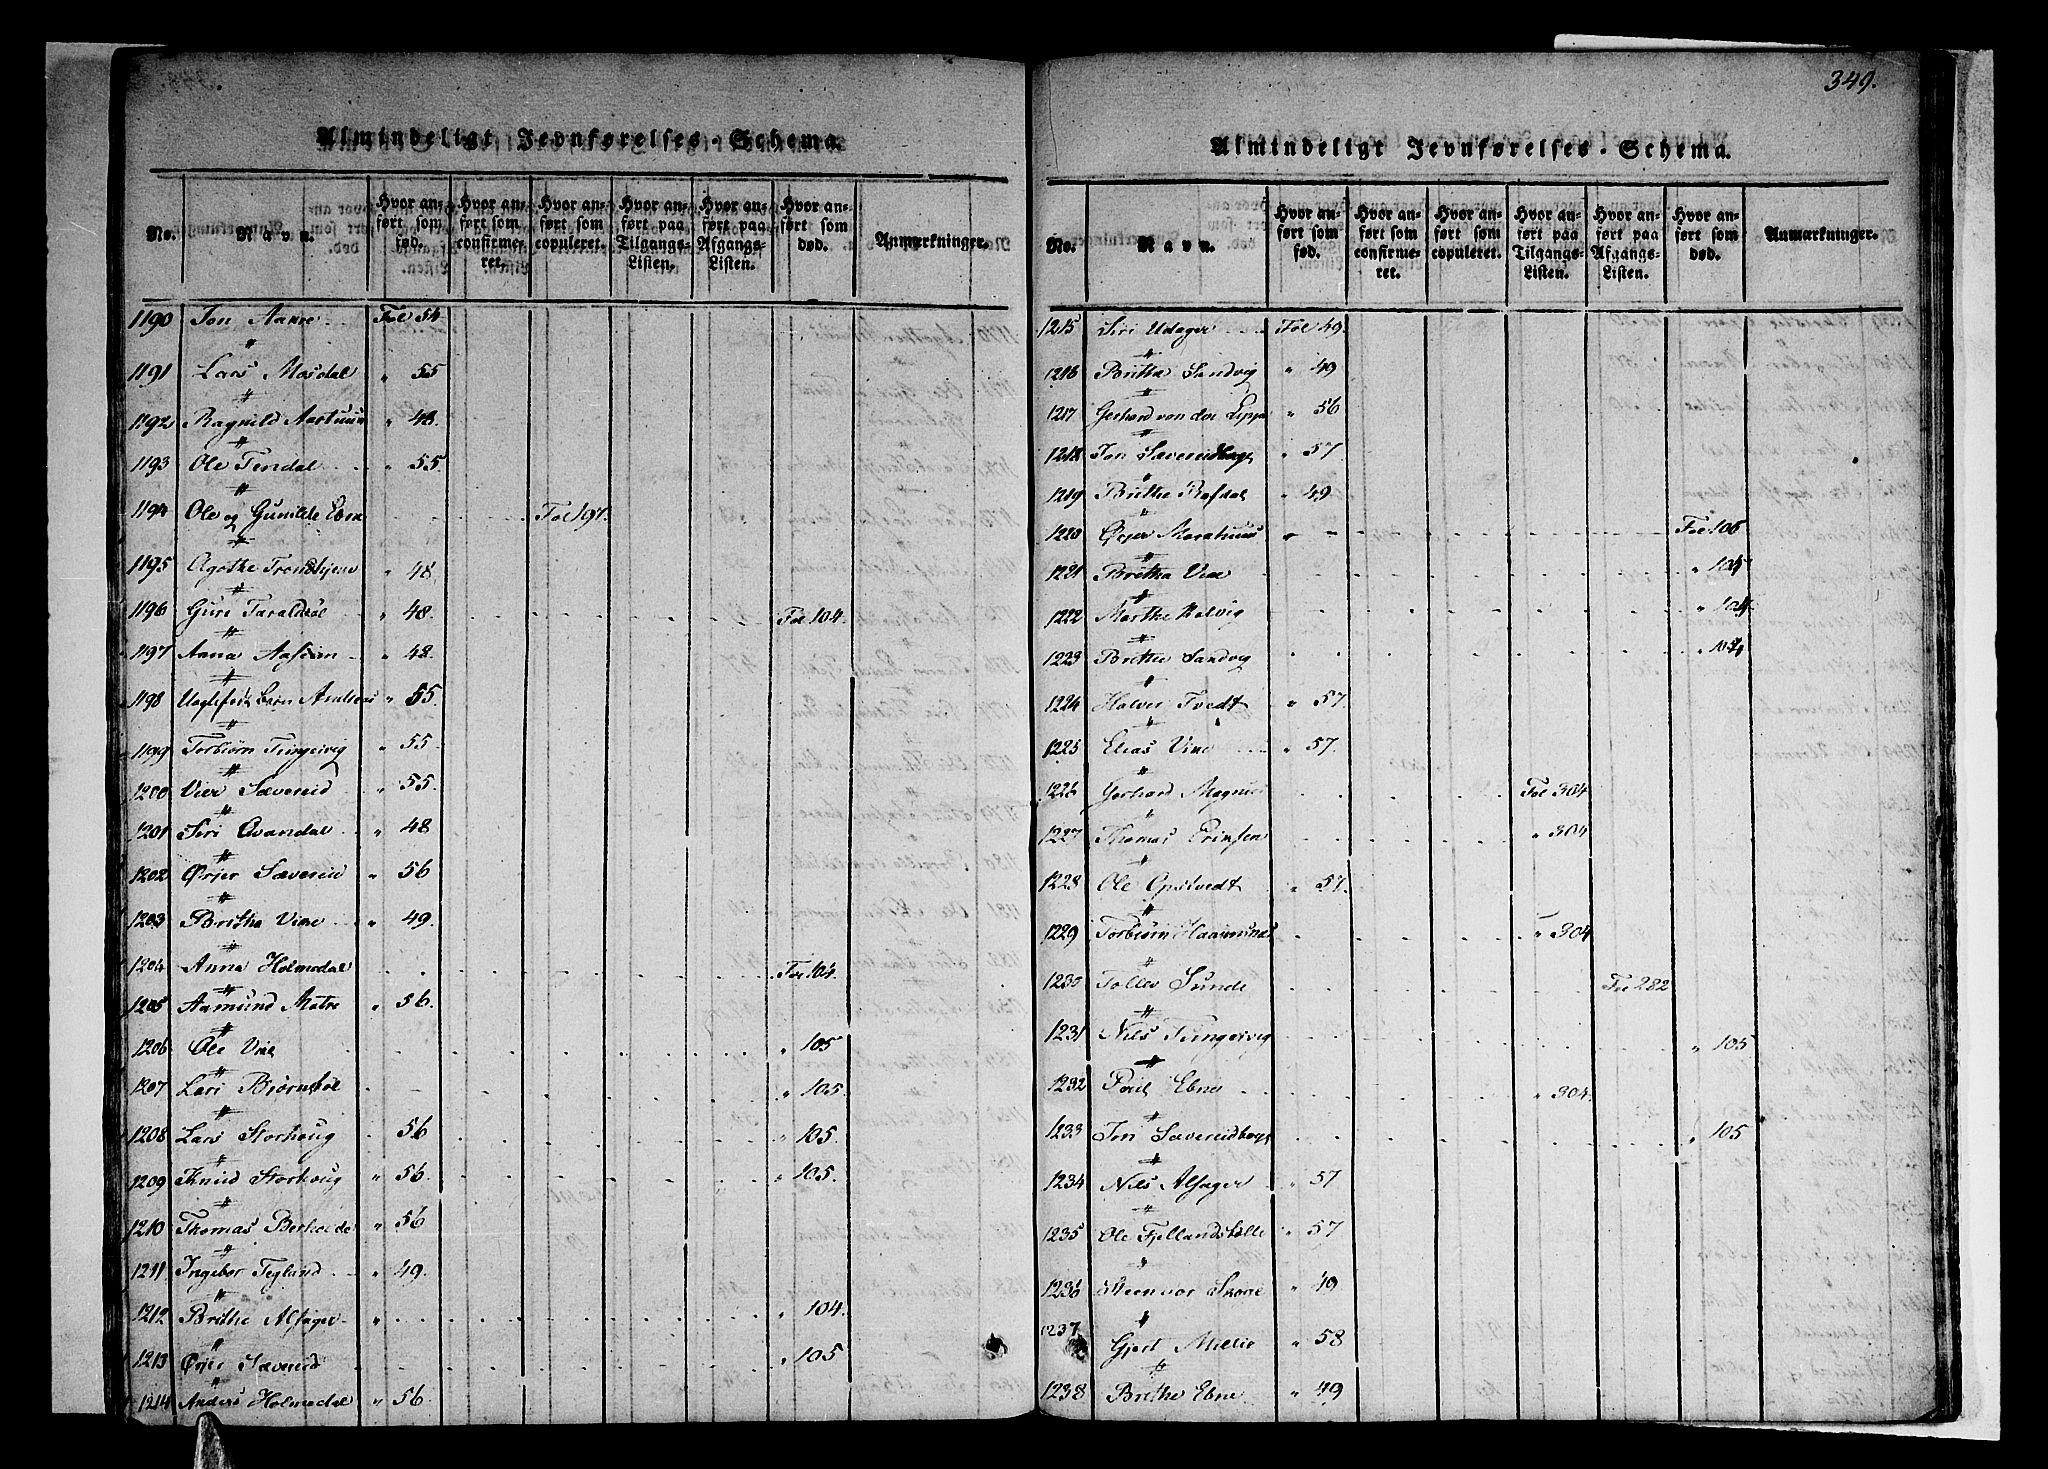 349.
Almindeligt Jevnførelses-Schema.
No.
Navn.
Hvor anført som fød.
Hvor anført som confirmeret.
Hvor anført som copuleret.
Hvor anført paa Tilgangs-Listen.
Hvor anført paa Afgangs-Listen.
Hvor anført som død.
Anmærkninger.
1190 Jon Aarre Fol 54
1191 Lars Mosdal " 55
1192 Ragnild Aarhuus " 48.
1193 Ole Tendal " 55
1194 Ole og Gunilde Ebne Fol 197.
1195 Agathe Trondhjem " 48
1196 Guri Taraldsøl " 48 Fol 104.
1197 Anna Aaseim " 48.
1198 Uegtefødt Barn Andreas " 55.
1199 Torbiørn Tungesvig " 55
1200 Vier Sævereid " 55.
1201 Siri Qvandal " 48
1202 Ørjer Sævereid " 56
1203 Britha Vine " 49
1204 Anna Holmedal Fol 104.
1205 Aamund Matre " 56.
1206 Ole Vine " 105
1207 Lari Bjørnsøl " 105.
1208 Lars Storhoug 56 " 105.
1209 Knud Storhoug " 56. " 105.
1210 Thomas Berheide " 56
1211 Ingebor Tegland " 49.
1212 Brithe Alsager " 104.
1213 Ørjer Sævereid " 105
1214 Anders Holmedal " 56.
Almindeligt Jevnførelses-Schema.
No.
Navn.
Hvor anført som fød.
Hvor anført som confirmeret.
Hvor anført som copuleret.
Hvor anført paa Tilgangs-Listen.
Hvor anført paa Afgangs-Listen.
Hvor anført som død.
Anmærkninger.
1215 Siri Udager Fol 49.
1216 Britha Sandvig " 49
1217 Gerhard von der Lippe " 56
1218 Jon Sævereidberge " 57
1219 Brithe Røfdal " 49
1220 Ørjer Marahuus Fol 106
1221 Britha Vine " 105
1222 Marthe Malvig " 104
1223 Brithe Sandvig " 104
1224 Halver Tvedt " 57.
1225 Elias Vine " 57.
1226 Gerhard Magnus Fol 304
1227 Thomas Erinsen " 304
1228 Ole Opstvedt " 57.
1229 Torbiørn Haaimsnæs " 304
1230 Tollev Sunde Fol 282
1231 Nils Tungesvig " 105
1232 Poul Ebne " 304.
1233 Jon Sævereidberge " 105
1234 Nils Alsager " 57
1235 Ole Fjellandsbølle " 57
1236 Steenvor Skore " 49
1237 Gjert Mielie " 58
1238 Brithe Ebne " 49